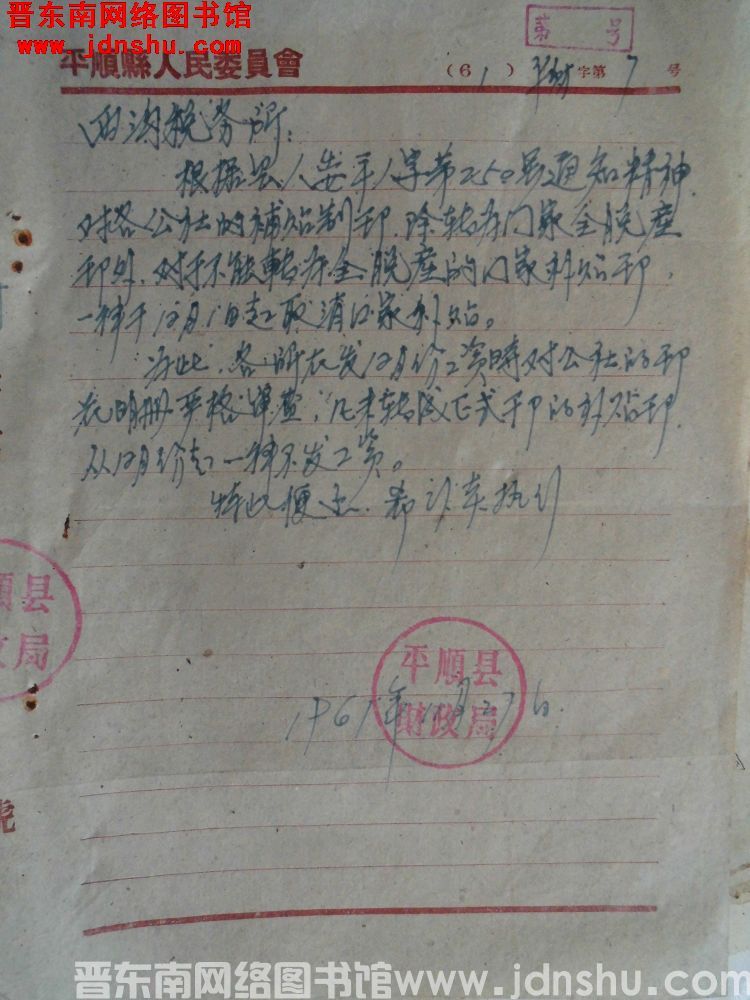 晋东南网络图书馆
www.jdnshu.com
第 号
平順縣人民委員會
(61) 平财 字第 7 号
西沟税务所:
根据县人委平人字第250号通知精神,
对各公社的補贴制卩,除转为门家全脱産
卩外,对于不能转为全脱産的门家补贴卩,
一律于12月1日起取消门家补贴。
为此,各所在发12月份工资時对公社的卩
花明册严格審查,凡未转成正式卩的补贴卩,
从12月份起一律不发工资。
特此便函,希认真执行
順县
政局
平順县
财政局
1961年 月27日.
晋东南网络图书馆www.jdnshu.com